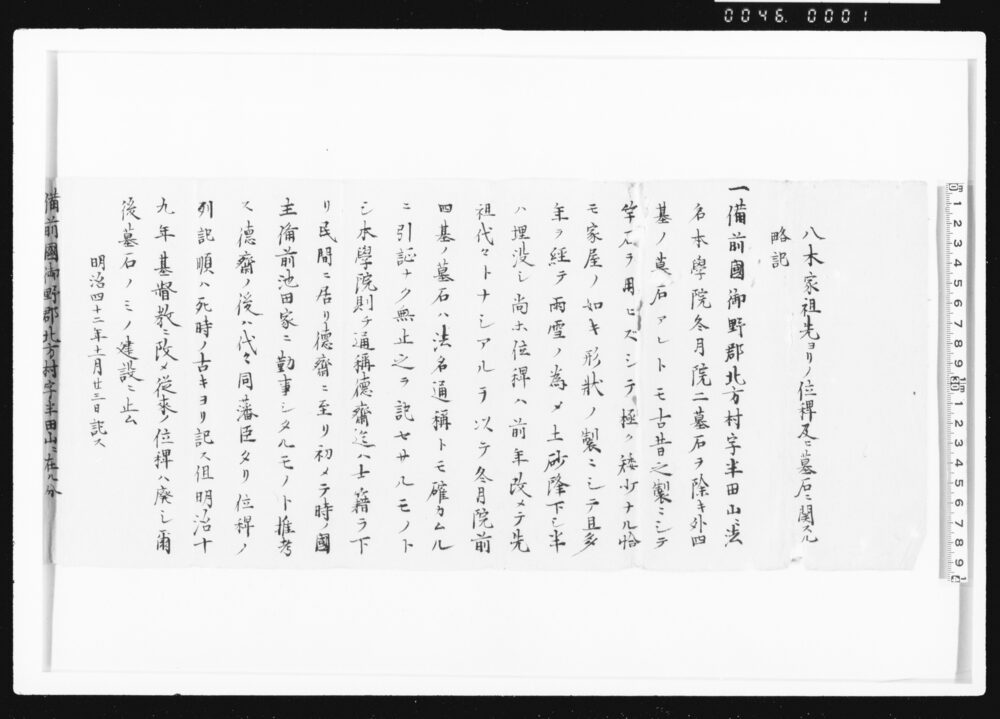 0046. 0001
八木家祖先ヨリノ位稗及ニ墓石ニ関スル
略記
一備前國御野郡北方村字半田山ニ法
名本學院冬月院二墓石ヲ除キ外四
基ノ墓石アレトモ古昔之製ニシテ
竿石ヲ用ヒズシテ極ク矮少ナル恰
モ家屋ノ如キ形狀ノ製ニシテ且多
年ヲ経テ雨雪ノ為メ土砂降下シ半
ハ埋没シ尚ホ位稗ハ前年改メテ先
祖代々トナシアルヲ以テ冬月院前
四基ノ墓石ハ法名通稱トモ確カムル
ニ引証ナク無止之ヲ記セサルモノト
シ本學院則チ通稱德齋迄ハ士籍ヲ下
リ民間ニ居リ德齋ニ至リ初メテ時ノ國
主備前池田家ニ勤事シタルモノト推考
ス德齋ノ後ハ代々同藩臣タリ位稗ノ
列記順ハ死時ノ古キヨリ記ス但明治十
九年基督教ニ改メ従来ノ位稗ハ廃シ爾
後墓石ノミノ建設ニ止ム
明治四十二年十一月廿三日記ス
備前國御野郡北方村字半田山ニ在ル分